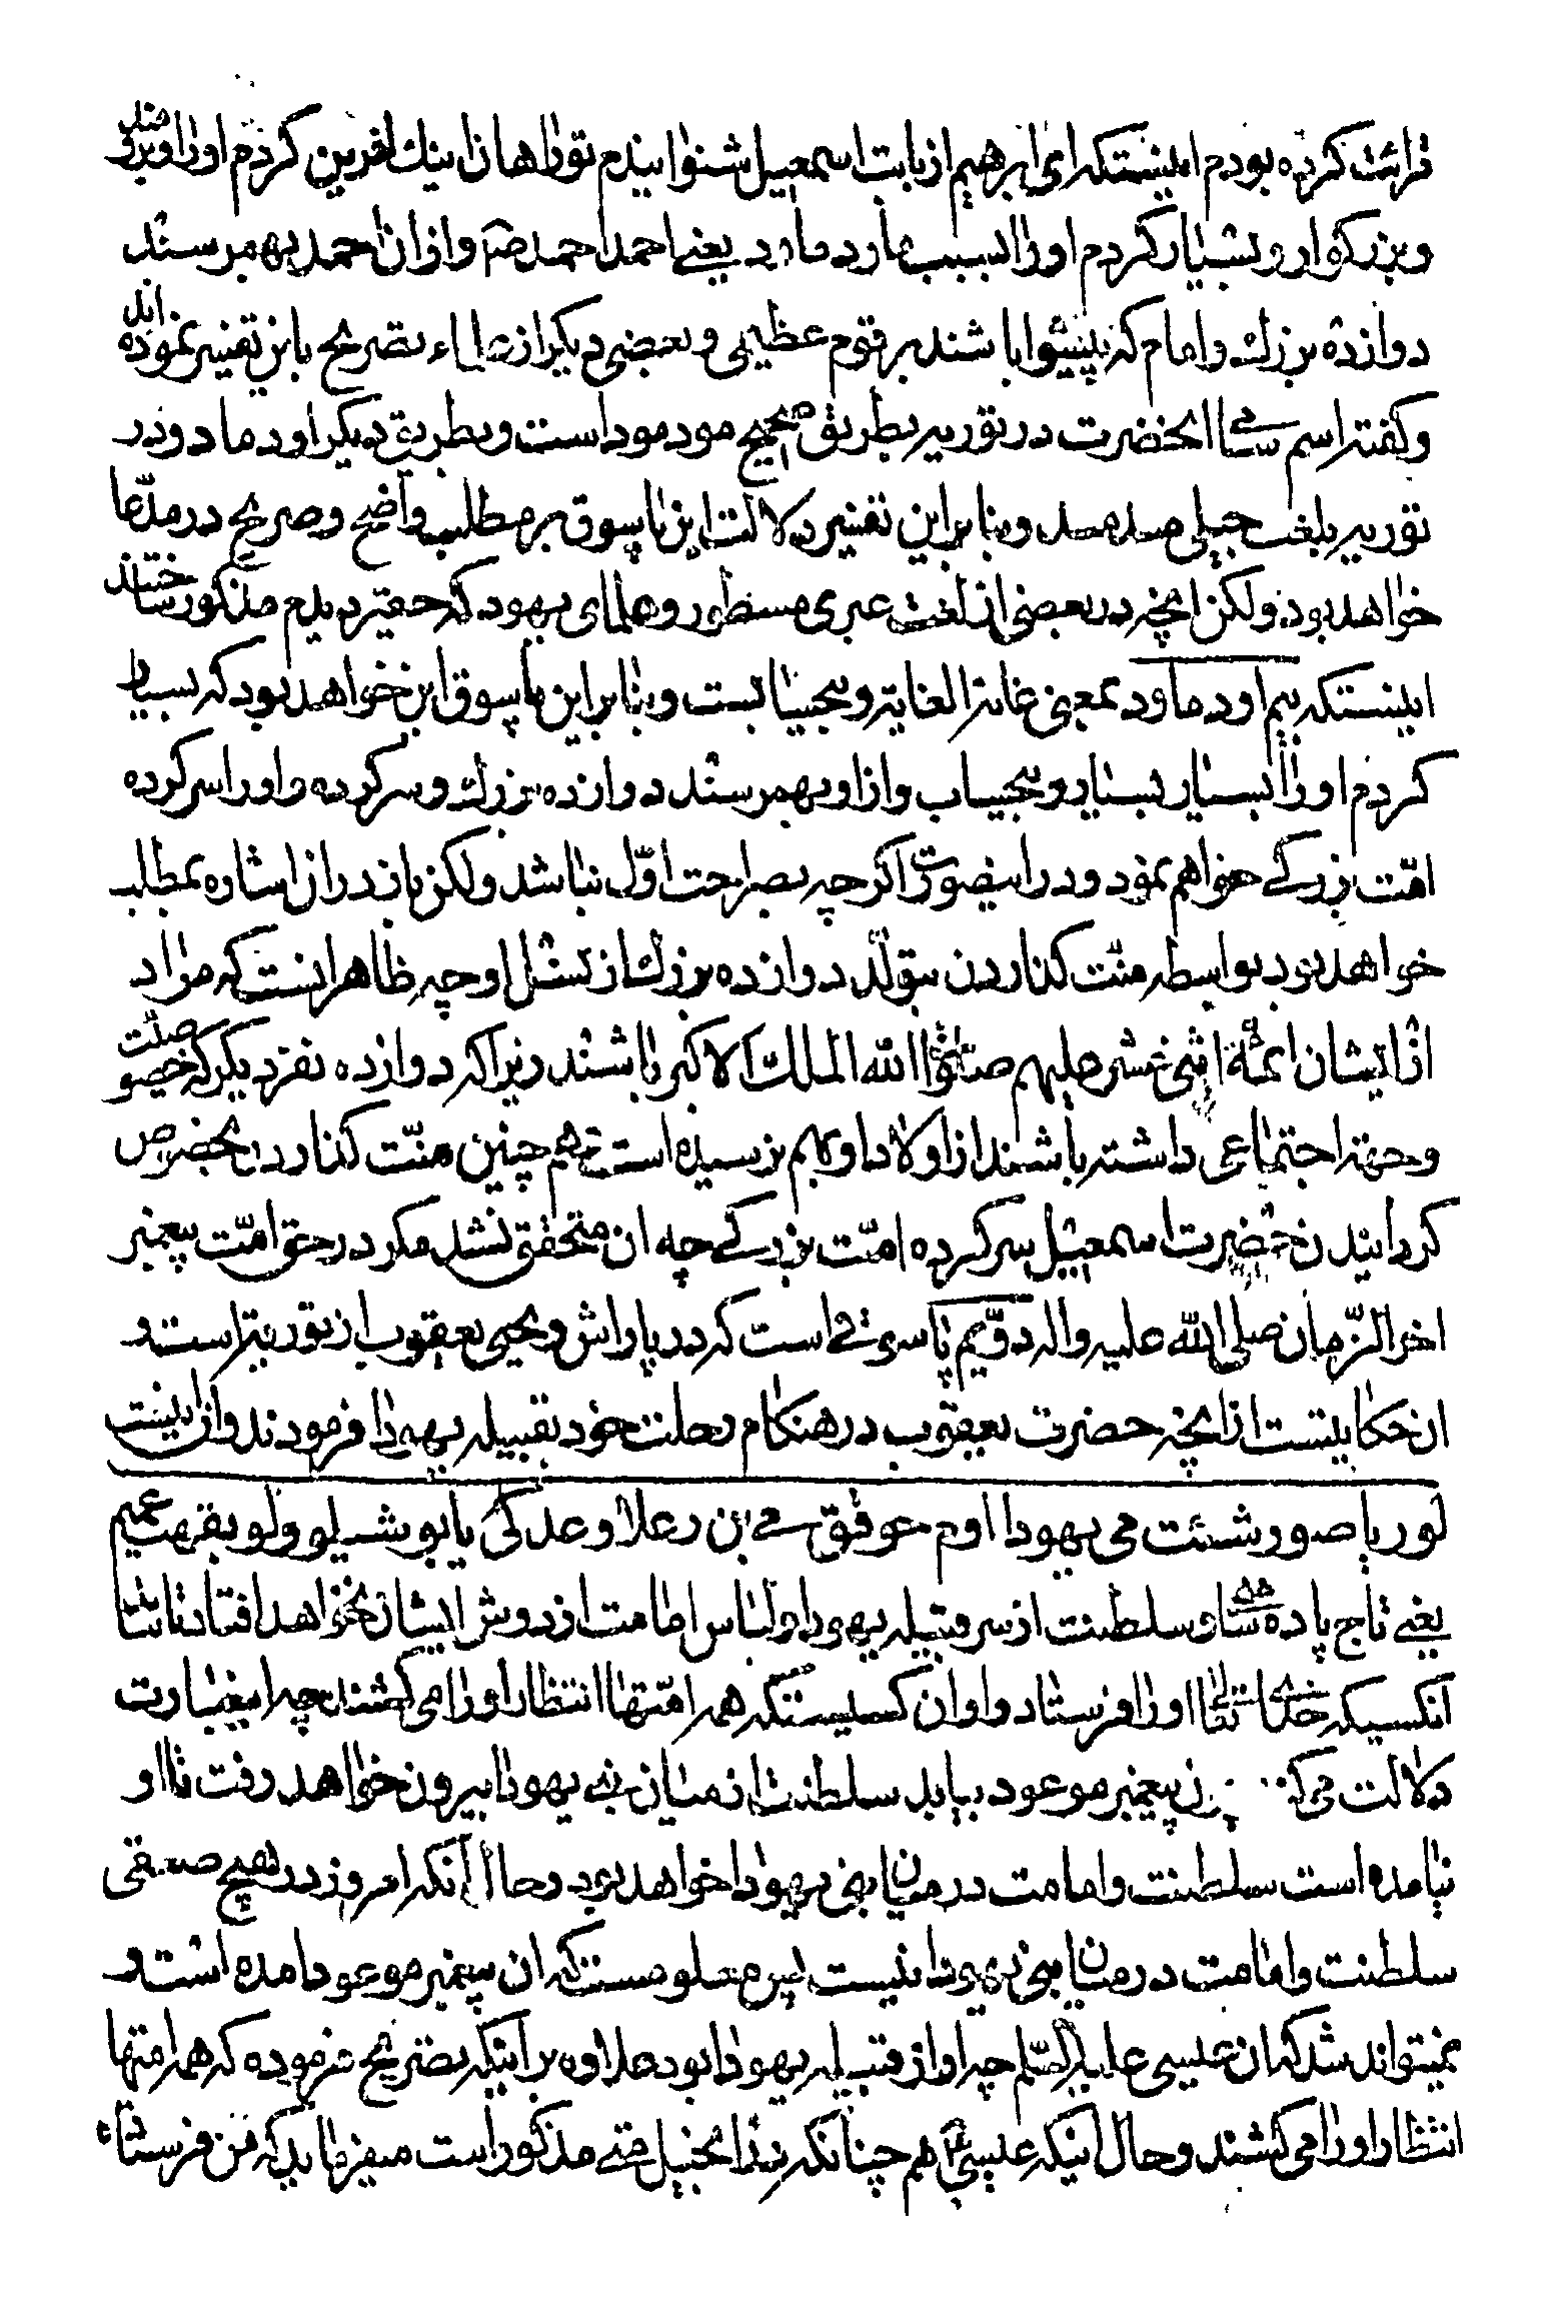 قرائت کرده بودم اینستکه ای ابرهیم از بابت اسمعیل شنوانیدم تو را ها ن اینك افرین کردم او را و بزرگ
و بزرکوار و بسیار کردم او را بسبب مارد ماد یعنے احمد احمد صۤ و از ان احمد بهمرسند
دوازده بزرك و امام که پیشوا باشند بر قوم عظیمی و بعضی دیکر از علماء تصریح باین تفسیر نموده اند
و کفته اسم سامی انحضرت در توریه بطریق صحیح مودمود است و بطریق دیکر اود ماد و در
توریه بلغت جبلی مسد مسد و بنا براین تفسیر دلالت این پاسوق بر مطلب واضح و صریح در مدّعا
خواهد بود ولکن انچه در بعضی از لغت عبری مسطور و علمای یهود که حقیر دیدم مذکور ساختند
اینستکه بیم اود ماود بمعنی غایة الغایة و بیحسابست و بنا براین پاسوق این خواهد بود که بسیار
کردم او را بسیار بسیار و بیحساب و از او بهمرسند دوازده بزرك و سرکرده و او را سرکرده
امّت بزرکے خواهم نمود و در اینصورت اکرچه بصراحت اوّل نباشد ولکن باز در ان اشاره بمطلب
خواهد بود بواسطه منّت کذاردن بتولّد دوازده بزرك از نسل او چه ظاهر اینست که مراد
از ایشان ائمّة اثنی عشر علیهم صلوٰة الله الملك الاکبر باشند زیرا که دوازده نفر دیکر که خصوصیّت
و جهة اجتماعی داشته باشند از اولاد او بهم نرسیده است و هم چنین منّت کذاردن بخصوص
کردانیدن حضرت اسمعیل سرکرده امّت بزرکے چه ان متحقق نشد مکر در حق امّت پیغمبر
اخر الزّمان صلی الله علیه و اله دوّیم پاسوقے است که در پاراش ویحی یعقوب از توریة است و
ان حکایتست از انچه حضرت یعقوب در هنکام رحلت خود بقبیله یهودا فرمودند و ان اینست
لو ریاصور شئت می یهودا اوم حوقق مے بن رعلاو عد کی یابو شیلو ولو یقهت عمیم
یعنے تاج پادشاه و سلطنت از سر قبیله یهودا و لباس امامت از دوش ایشان نخواهد افتاد تا بیاید
انکسیکه خدایتعالی او را فرستاد و او ان کسیستکه همه امّتها انتظار او را می کشند چه اینعبارت
دلالت می کند ... ان پیغمبر موعود بیاید سلطنت از میان بنی یهودا بیرون خواهد رفت تا او
نیامده است سلطنت و امامت در میان بنی یهودا خواهد بود و حال آنکه امروز در هیچ صقعی
سلطنت و امامت در میان بنی یهودا نیست پس معلومست که ان پیغمبر موعود امده است و
نمیتواند شد که ان عیسی علیه السّلم چه او از قبیله یهودا بود علاوه بر اینکه تصریح فرموده که همه امتها
انتظار او را می کشند و حال اینکه عیسیؑ هم چنانکه در انجیل متے مذکور است میفرماید که من فرستاده